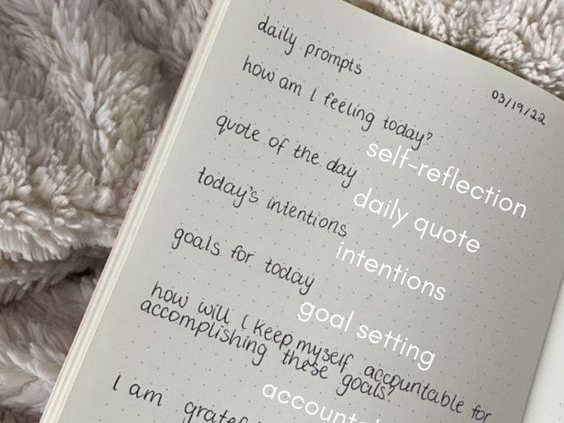 daily prompts
03/19/22
how am I feeling today?
self-reflection
quote of the day
daily quote
today's intentions
intentions
goals for today
goal setting
how will I keep myself accountable for
accomplishing these goals?
I am